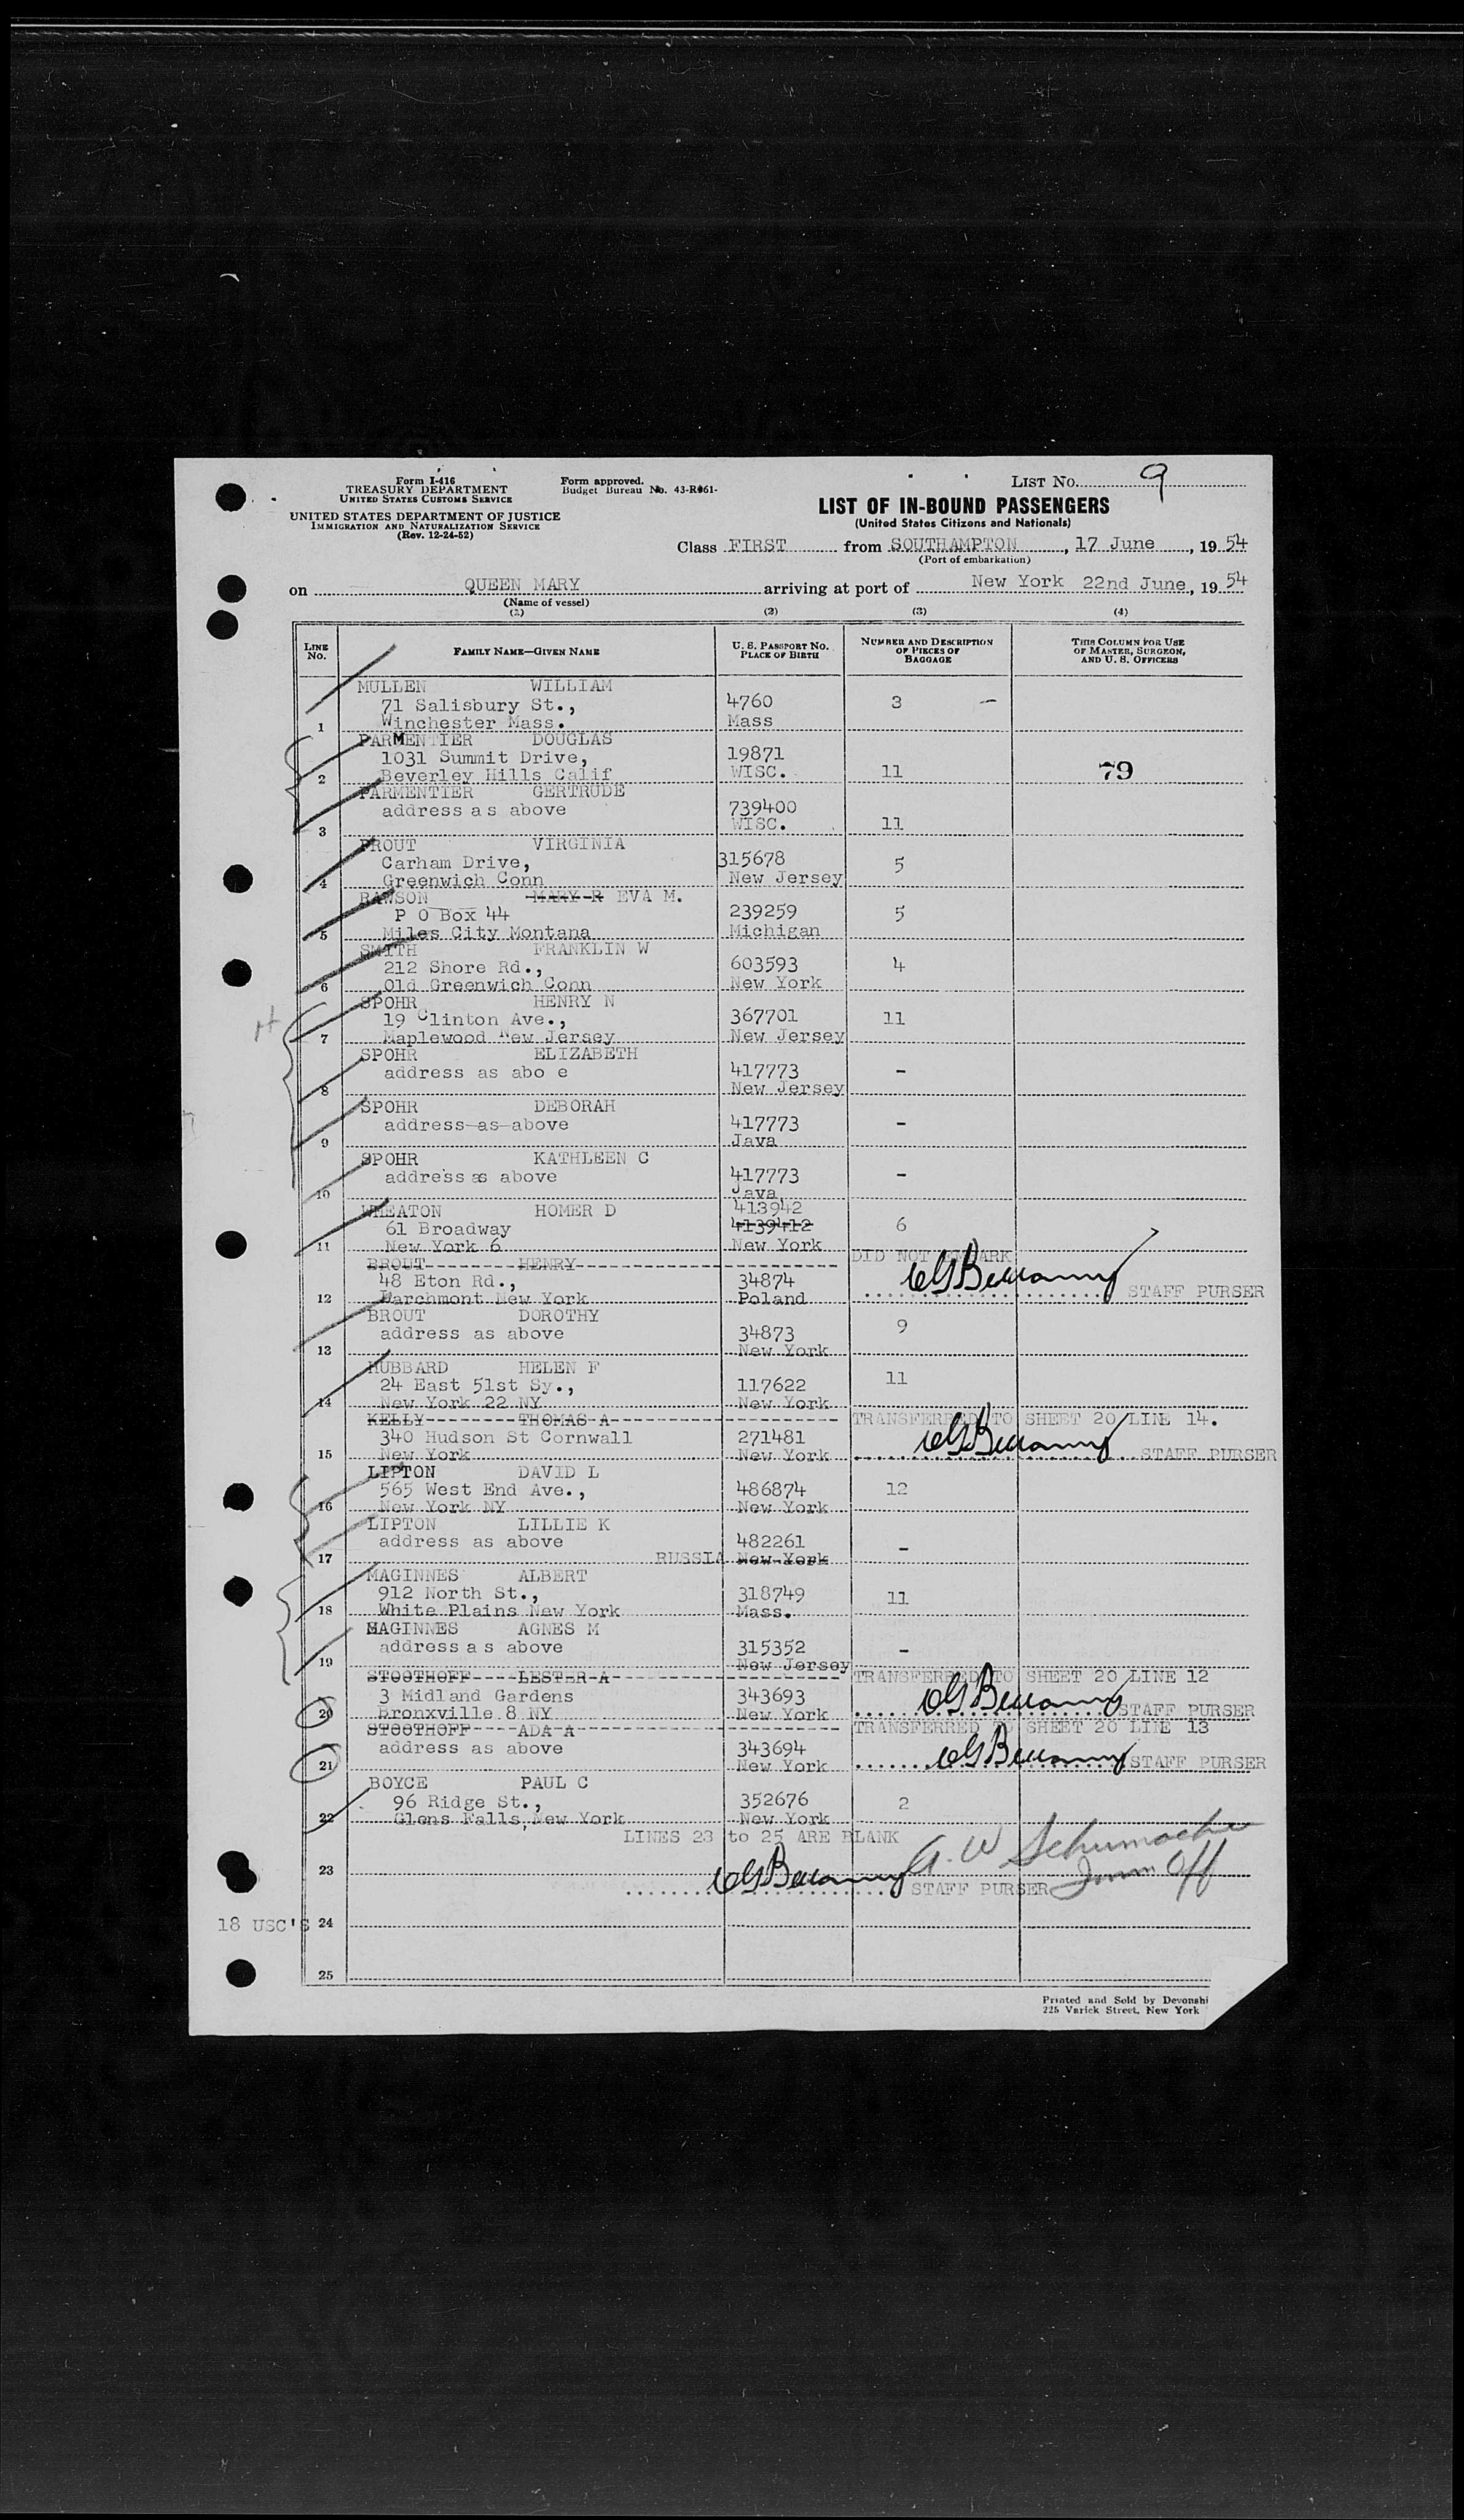 Form I-416
TREASURY DEPARTMENT
UNITED STATES CUSTOMS SERVICE
UNITED STATES DEPARTMENT OF JUSTICE
IMMIGRATION AND NATURALIZATION SERVICE
(Rev. 12-24-52)
Form approved.
Budget Bureau No. 43-R061-
LIST NO. 9
LIST OF IN-BOUND PASSENGERS
(United States Citizens and Nationals)
Class FIRST from SOUTHAMPTON, 17 June, 1954
(Port of embarkation)
on QUEEN MARY arriving at port of New York 22nd June, 1954
(Name of vessel)
(2) (3) (4)
LINE NO. FAMILY NAME—GIVEN NAME U. S. PASSPORT NO. PLACE OF BIRTH NUMBER AND DESCRIPTION OF PIECES OF BAGGAGE THIS COLUMN FOR USE OF MASTER, SURGEON, AND U. S. OFFICERS
MULLEN WILLIAM
71 Salisbury St., 4760 3 -
1 Winchester Mass. Mass
PARMENTIER DOUGLAS
1031 Summit Drive, 19871
2 Beverley Hills Calif WISC. 11 79
PARMENTIER GERTRUDE
address as above 739400
3 WISC. 11
PROUT VIRGINIA
Carham Drive, 315678 5
4 Greenwich Conn New Jersey
RAWSON MARY R EVA M.
P O Box 44 239259 5
5 Miles City Montana Michigan
SMITH FRANKLIN W
212 Shore Rd., 603593 4
6 Old Greenwich Conn New York
SPOHR HENRY N
19 Clinton Ave., 367701 11
7 Maplewood New Jersey New Jersey
SPOHR ELIZABETH
address as abo e 417773 -
8 New Jersey
SPOHR DEBORAH
address-as-above 417773 -
9 Java
SPOHR KATHLEEN C
address as above 417773 -
10 Java
WHEATON HOMER D 413942
61 Broadway 4139412 6
11 New York 6 New York
BROUT HENRY DID NOT EMBARK
48 Eton Rd., 34874
12 Larchmont New York Poland STAFF PURSER
BROUT DOROTHY
address as above 34873 9
13 New York
HUBBARD HELEN F
24 East 51st Sy., 117622 11
14 New York 22 NY New York
KELLY THOMAS A TRANSFERRED TO SHEET 20 LINE 14.
340 Hudson St Cornwall 271481
15 New York New York STAFF PURSER
LIPTON DAVID L
565 West End Ave., 486874 12
16 New York NY New York
LIPTON LILLIE K
address as above 482261 -
17 RUSSIA New York
MAGINNES ALBERT
912 North St., 318749 11
18 White Plains New York Mass.
MAGINNES AGNES M
address as above 315352 -
19 New Jersey
STOOTHOFF LEST-R-A TRANSFERRED TO SHEET 20 LINE 12
3 Midland Gardens 343693
20 Bronxville 8 NY New York STAFF PURSER
STOOTHOFF ADA-A TRANSFERRED TO SHEET 20 LINE 13
address as above 343694
21 New York STAFF PURSER
BOYCE PAUL C
96 Ridge St., 352676 2
22 Glens Falls, New York New York
LINES 23 to 25 ARE BLANK
A. W Schumacher
23 STAFF PURSER Imm Off
18 USC'S 24
25
Printed and Sold by Devonshi
225 Varick Street, New York